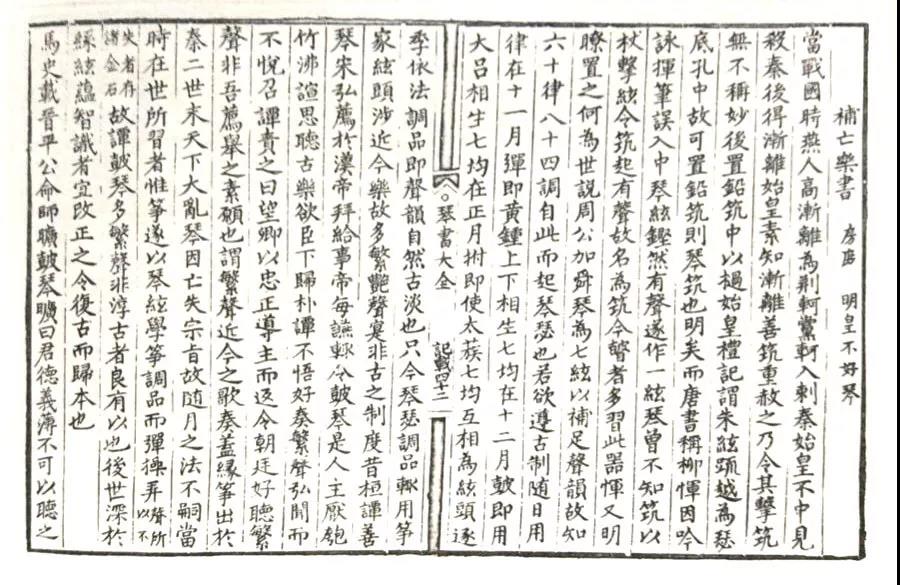 補亡樂書　房庶　明皇不好琴
當戰國時燕人高漸離為荆軻黨軻入刺秦始皇不中見
殺秦後得漸離始皇素知漸離善筑重赦之乃令其擊筑
無不稱妙後置鉛筑中以檛始皇禮記謂朱絃踈越為瑟
底孔中故可置鉛筑則琴筑也明矣而唐書稱柳惲因吟
詠揮筆誤入中琴絃鏗然有聲遂作一絃琴曾不知筑以
杖擊絃今筑起有聲故名為筑今瞽者多習此器惲又明
瞭置之何為世説周公加舜琴為七絃以補足聲韻故知
六十律八十四調自此而起琴瑟也若欲遵古制随日用
律在十一月彈即黄鍾上下相生七均在十二月皷即用
大吕相生七均在正月拊即使太蔟七均互相為絃頭逐
琴書大全
記載四十二
季依法調品即聲韻自然古淡也只今琴瑟調品輙用筝
家絃頭涉近今樂故多繁艶聲寔非古之制度昔桓譚善
琴宋弘薦於漢帝拜給事帝每讌輙令皷琴是人主厭飽
竹沸諠思聽古樂欲臣下歸朴譚不悟好奏繁聲弘聞而
不悅召譚責之曰望卿以忠正導主而返令朝廷好聽繁
聲非吾薦舉之素願也謂繁聲近今之歌奏盖縁筝出於
秦二世末天下大亂琴因亡失宗旨故随月之法不嗣當
時在世所習者惟筝遂以琴絃學筝調品而彈操弄以聲所不
失者存諸金石故譚皷琴多繁聲非淳古者良有以也後世深於
絲絃藴智識者宜改正之令復古而歸本也
馬史載晉平公命師曠皷琴曠曰君德義薄不可以聽之